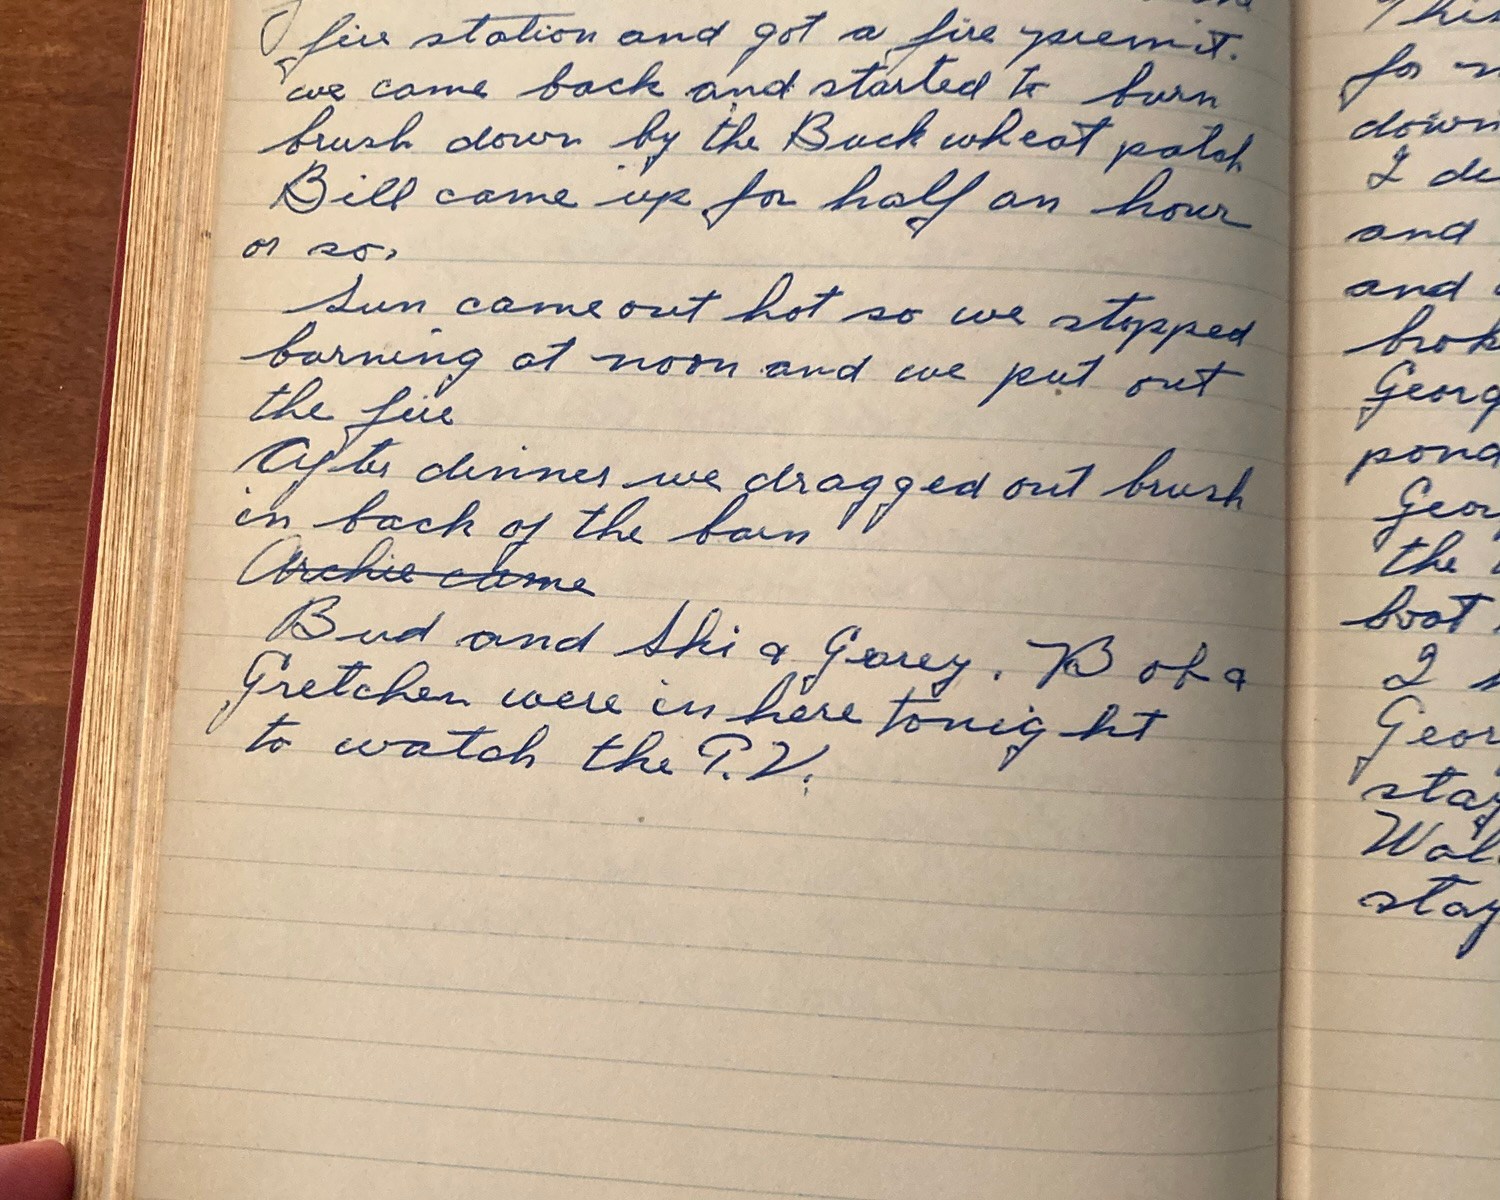 fire station and got a fire permit.
we came back and started to burn
brush down by the Buck wheat patch
Bill came up for half an hour
or so.
Sun came out hot so we stopped
burning at noon and we put out
the fire
After dinner we dragged out brush
in back of the barn
Archie came
Bud and Ski & Gorey. B of a
Gretchen were in here tonight
to watch the T.V.
for
down
I de
and
and
brok
Georg
pond
Geor
the
boat
I
Geor
stay
Wal
stay